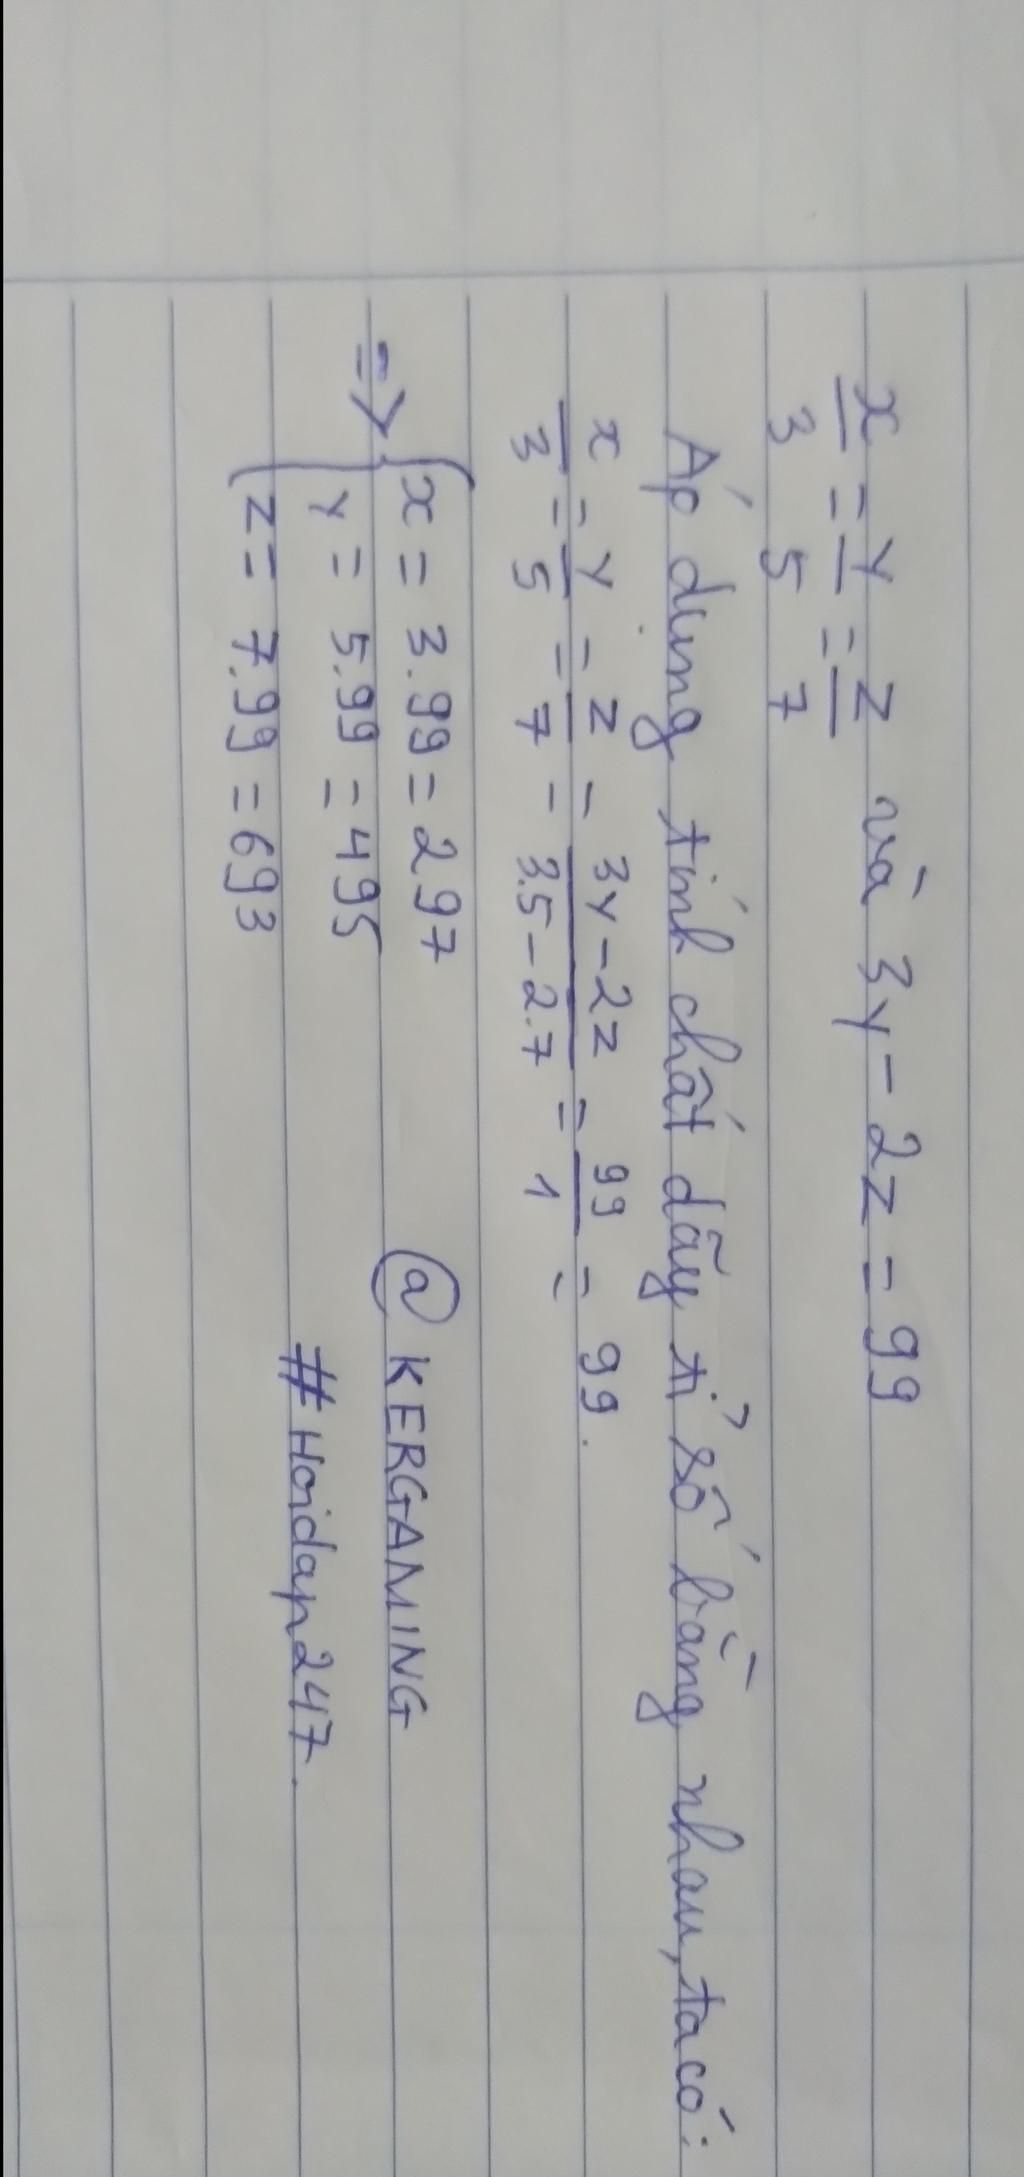 x/3 = y/5 = z/7 và 3y - 2z = 99
Áp dụng tính chất dãy tỉ số bằng nhau, ta có:
x/3 = y/5 = z/7 = 3y-2z/3.5-2.7 = 99/1 = 99.
=> { x = 3.99 = 297
y = 5.99 = 495
z = 7.99 = 693
@ KERGAMING
#Hoidap247.